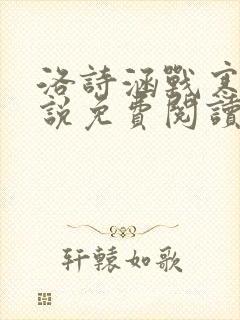 洛詩涵戰寒
說免費閱讀
轩辕如歌